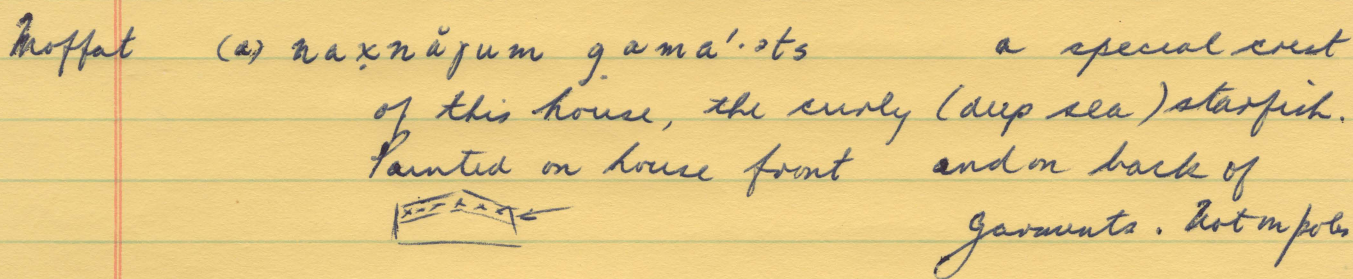 Moffat (a) nax̣nå̆γum g̣ama'·ats a special crest
of this house, the curly (deep sea) starfish.
Painted on house front and on back of
garments. Not on poles